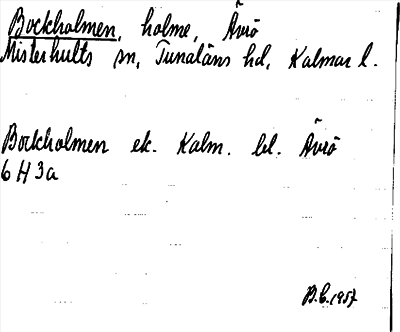 Bockholmen, holme, Ävrö
Misterhults sn, Tunaläns hd, Kalmar l.
Bockholmen ek. Kalm. bl. Ävrö
6 H 3a
B.C. 1957